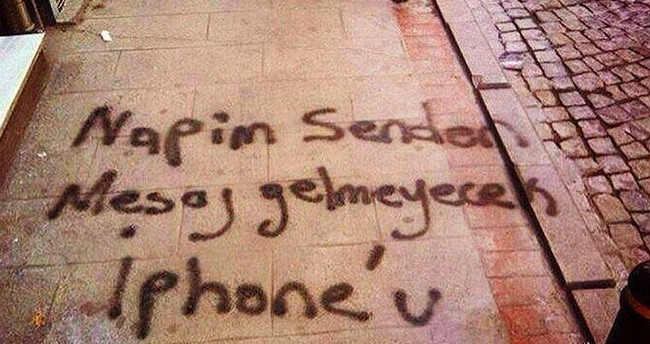 Napim Senden
Mesaj gelmeyecek
Iphone'u